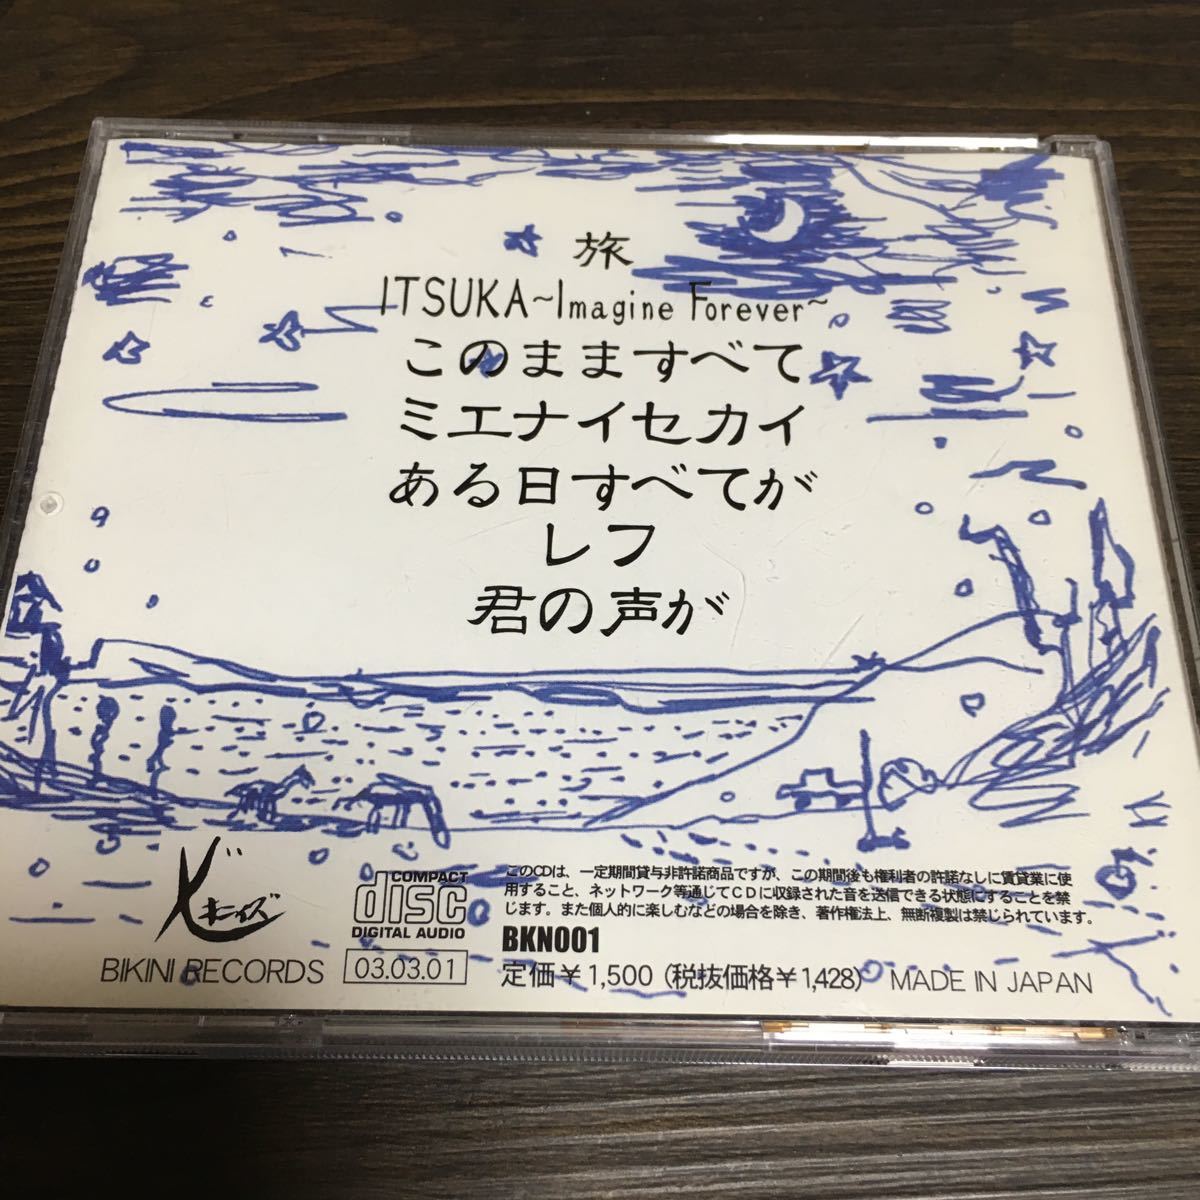 旅
ITSUKA~Imagine Forever~
このまますべて
ミエナイセカイ
ある日すべてが
レフ
君の声が
BIKINI RECORDS
COMPACT
disc
DIGITAL AUDIO
03.03.01
このCDは、一定期間貸与非許諾商品ですが、この期間後も権利者の許諾なしに賃貸業に使
用すること、ネットワーク等通じてCDに収録された音を送信できる状態にすることを禁
じます。また個人的に楽しむなどの場合を除き、著作権法上、無断複製は禁じられています。
BKN001
定価￥1,500（税抜価格￥1,428） MADE IN JAPAN